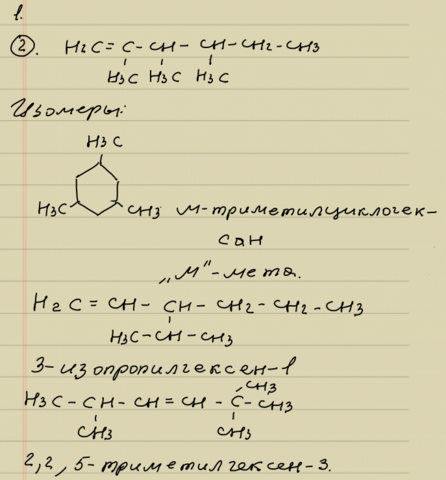 1.
2. H2C = C - CH - CH - CH2 - CH3
H3C H3C H3C
Изомеры:
H3C
H3C CH3 м-триметилциклогек-
сан
„м"-мета.
H2C = CH - CH - CH2 - CH2 - CH3
H3C - CH - CH3
3-изопропилгексен-1
CH3
H3C - CH - CH = CH - C - CH3
CH3 CH3
2,2,5-триметилгексен-3.